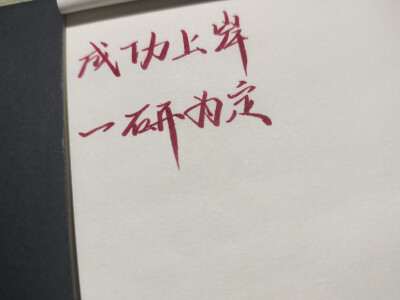 成功上岸
一研为定